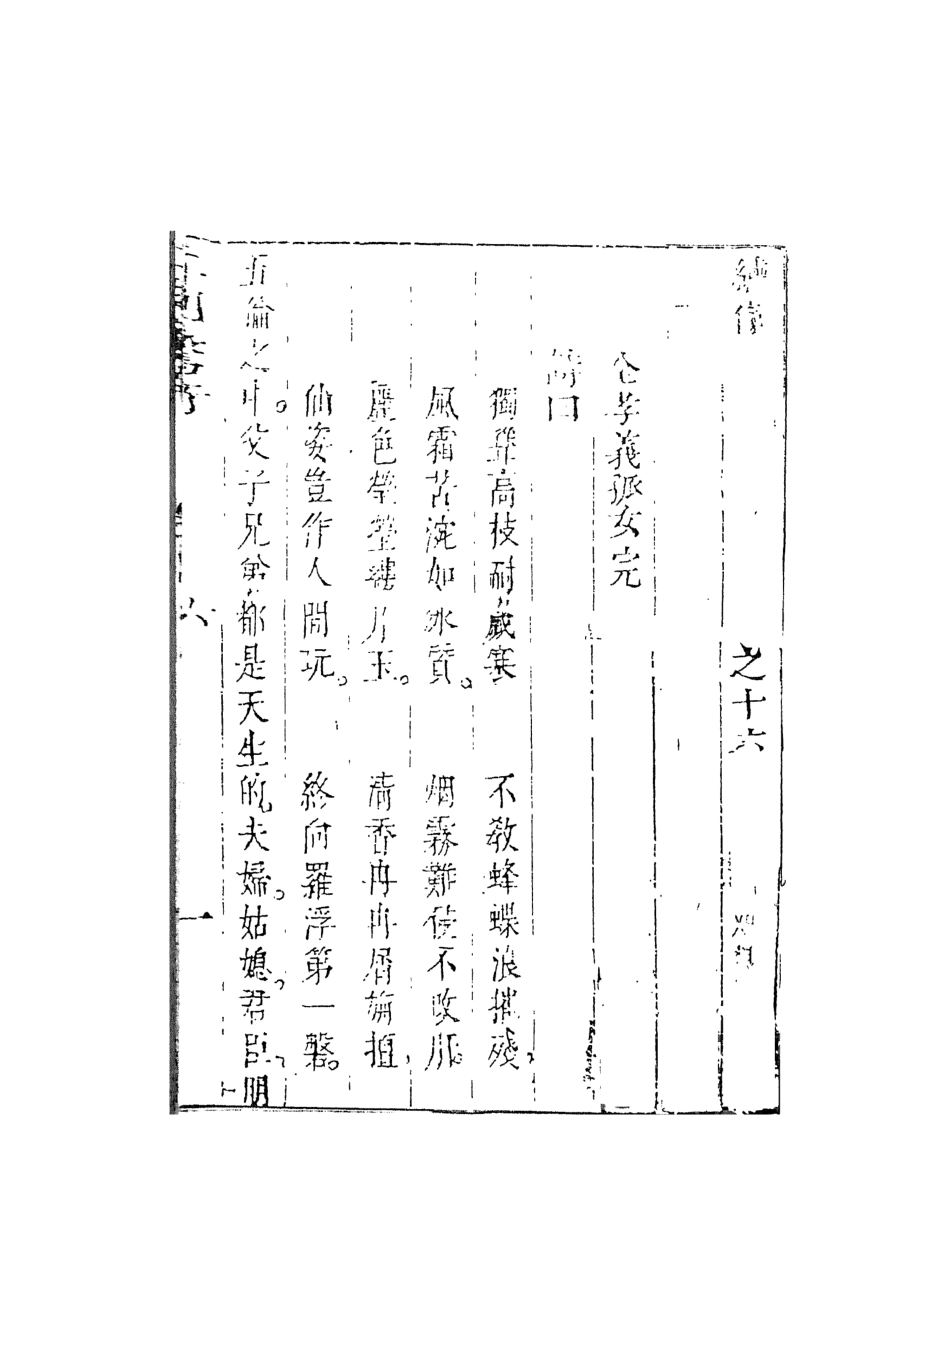 繡像 之十六
仝孝義孤女完
詩曰
獨□高枝耐歲寒 不教蜂蝶浪摧殘
風霜苦□如冰質 烟霧難侵不改
麗色瑩瑩□片玉 清香冉冉
仙姿豈作人間玩 終向羅浮第一磐
五倫之中父子兄弟都是天生的夫婦姑媳君臣朋
六 一